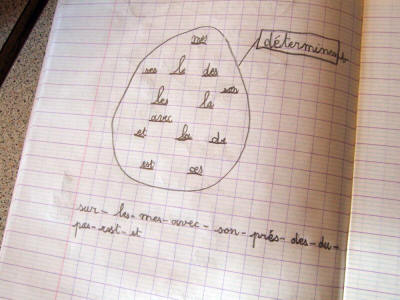 mes
déterminents
ses le des
son
les la
avec
et la de
est ces
sur - les - mes - avec - son - près - des - du -
pas - est - et